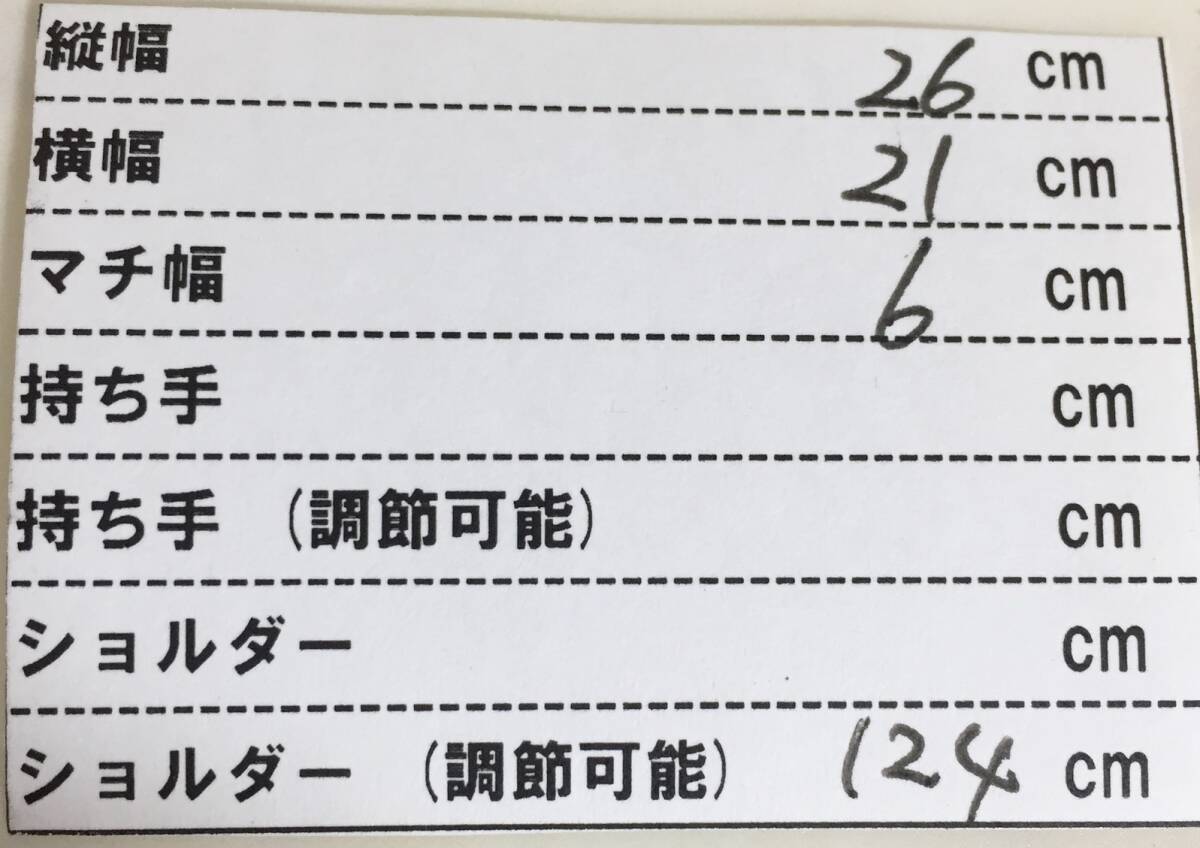 縦幅 26 cm
横幅 21 cm
マチ幅 6 cm
持ち手 cm
持ち手 (調節可能) cm
ショルダー cm
ショルダー (調節可能) 124 cm